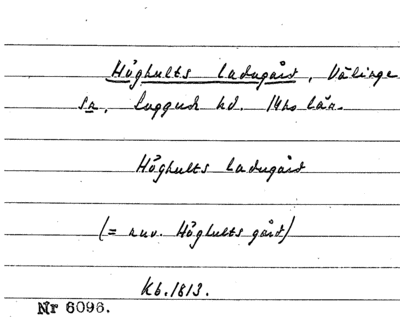 Höghults ladugård, Välinge
sn, Luggude hd. Mhs län.
Höghults ladugård
(= nuv. Höghults gård)
Kb. 1813.
Nr 6096.